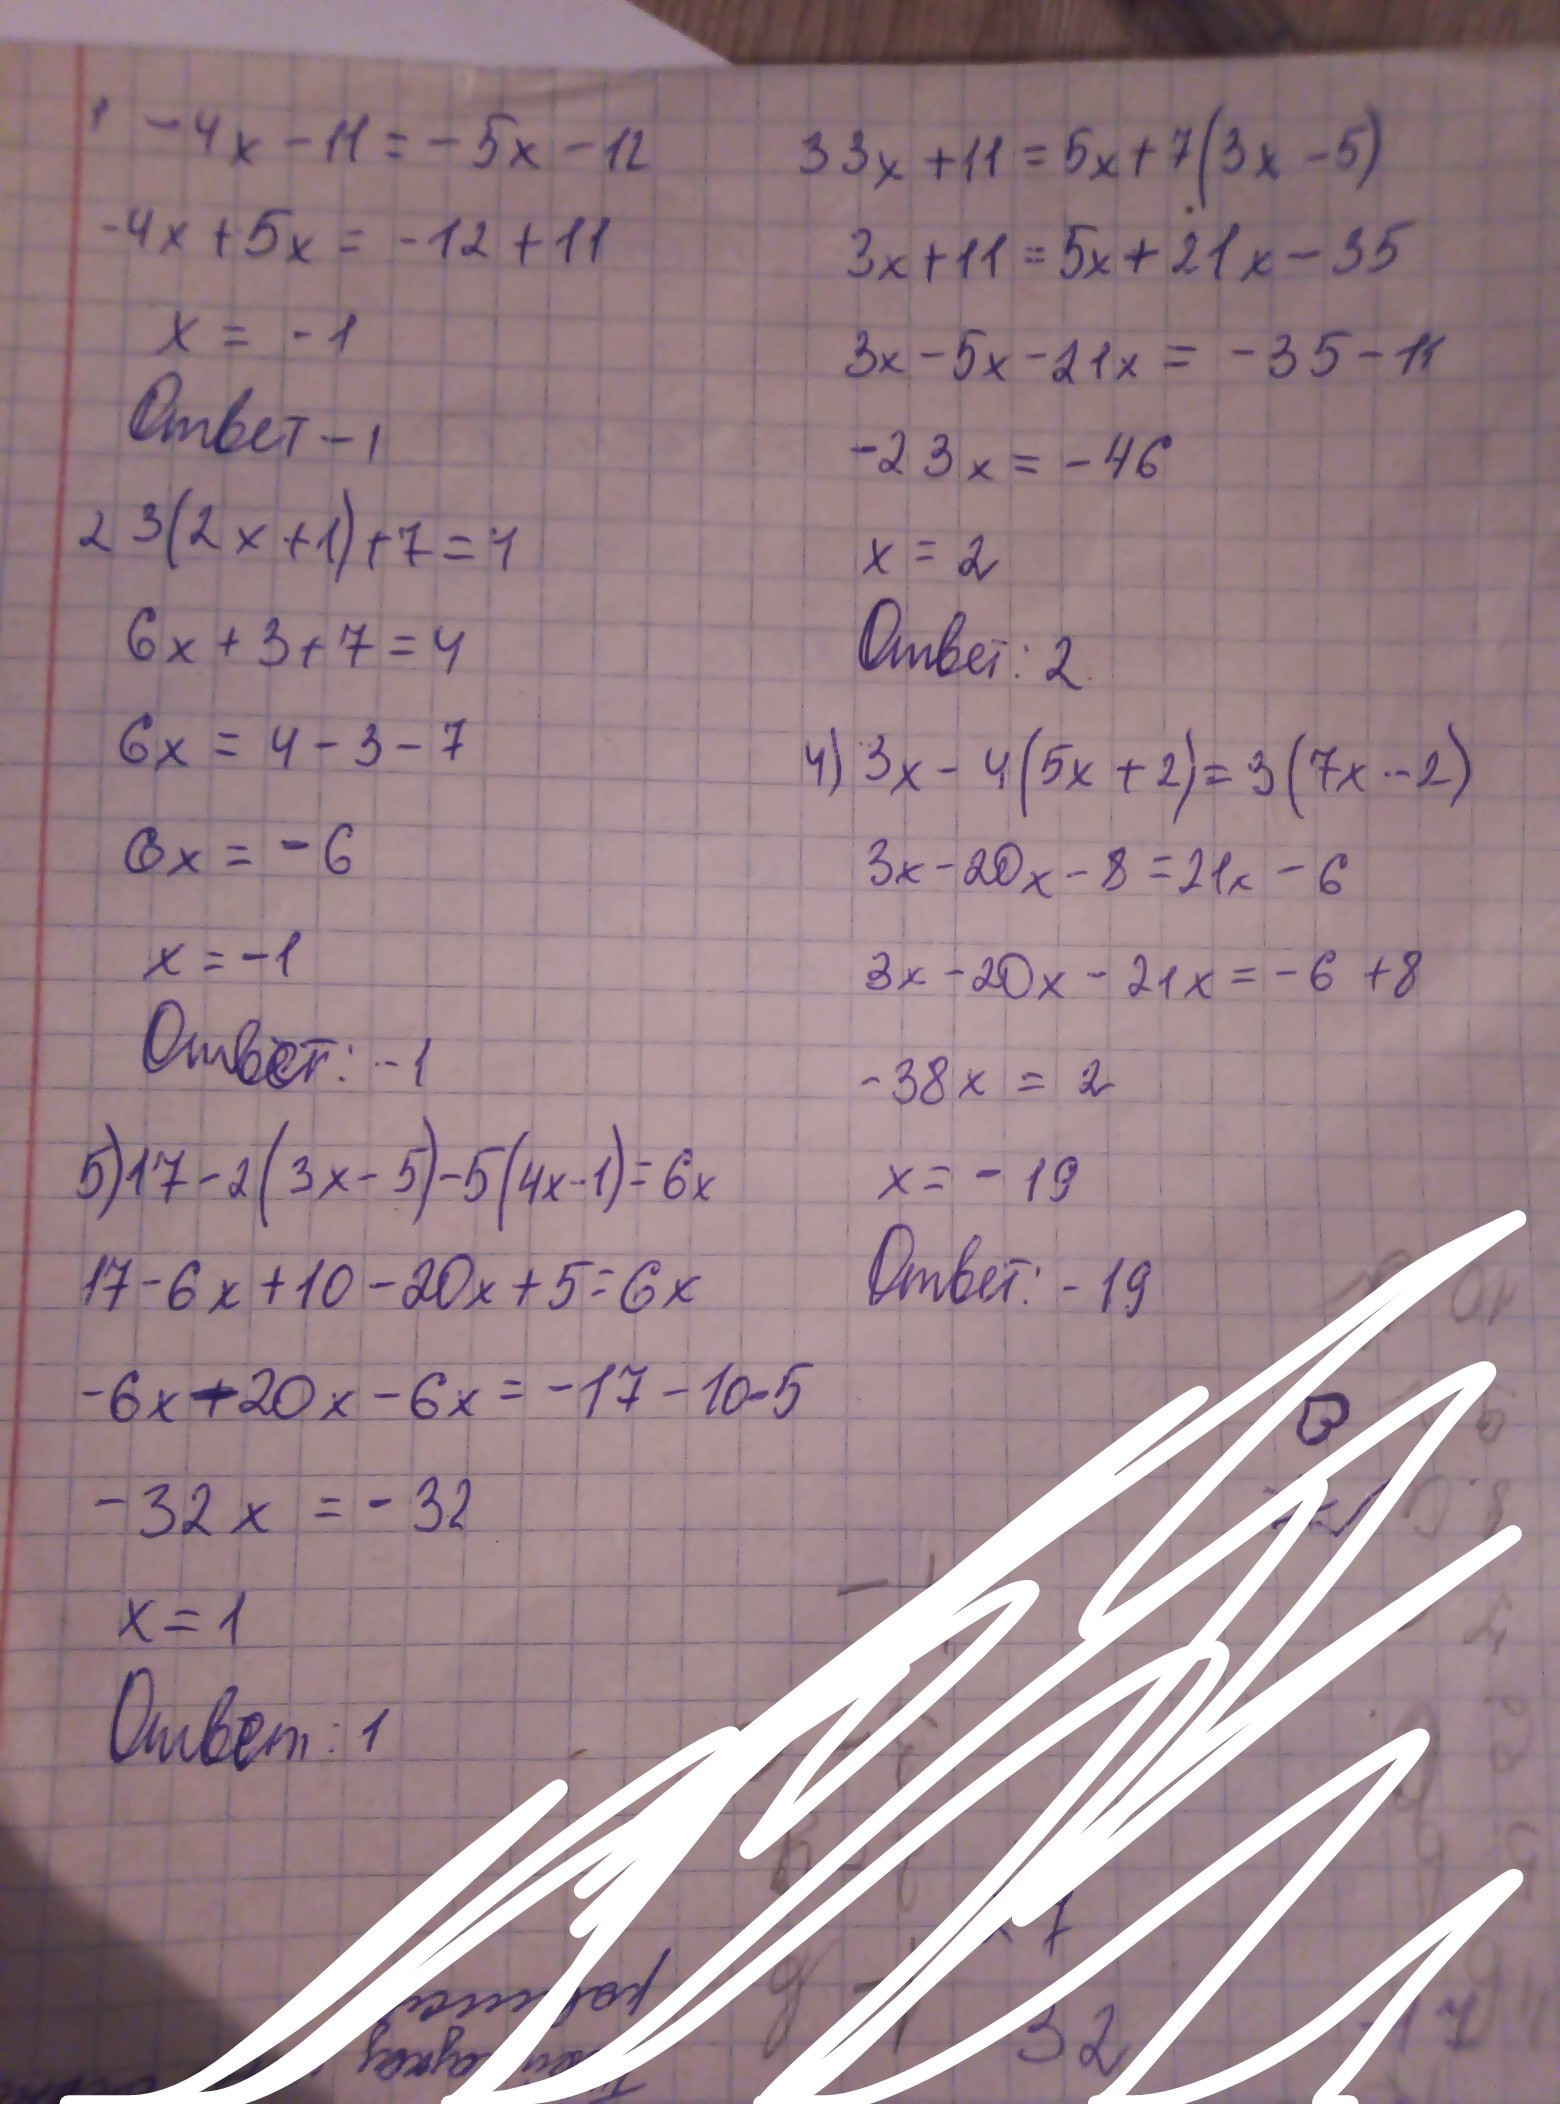 1 -4x-11=-5x-12
-4x+5x=-12+11
x=-1
Ответ-1
2 3(2x+1)+7=4
6x+3+7=4
6x=4-3-7
6x=-6
x=-1
Ответ: -1
5) 17-2(3x-5)-5(4x-1)=6x
17-6x+10-20x+5=6x
-6x-20x-6x=-17-10-5
-32x=-32
x=1
Ответ: 1
3 3x+11=5x+7(3x-5)
3x+11=5x+21x-35
3x-5x-21x=-35-11
-23x=-46
x=2
Ответ: 2
4) 3x-4(5x+2)=3(7x-2)
3x-20x-8=21x-6
3x-20x-21x=-6+8
-38x=2
x=-19
Ответ: -19
32